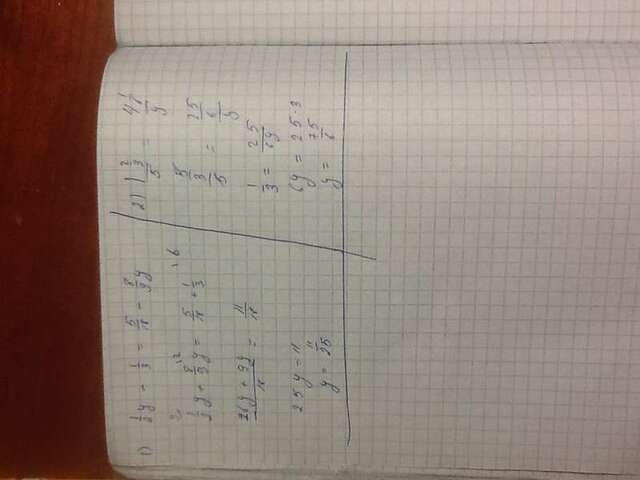 1) 1/2 y - 1/3 = 5/18 - 8/9 y
1/2 y + 8/9 y = 5/18 + 1/3
(16y + 9y)/18 = 11/18
25y = 11
y = 11/25
2) 1 2/3 / 5 = 4 1/6 / y
5/3 / 5 = 25/6 / y
1/3 = 25/6y
6y = 25 · 3
y = 75/6